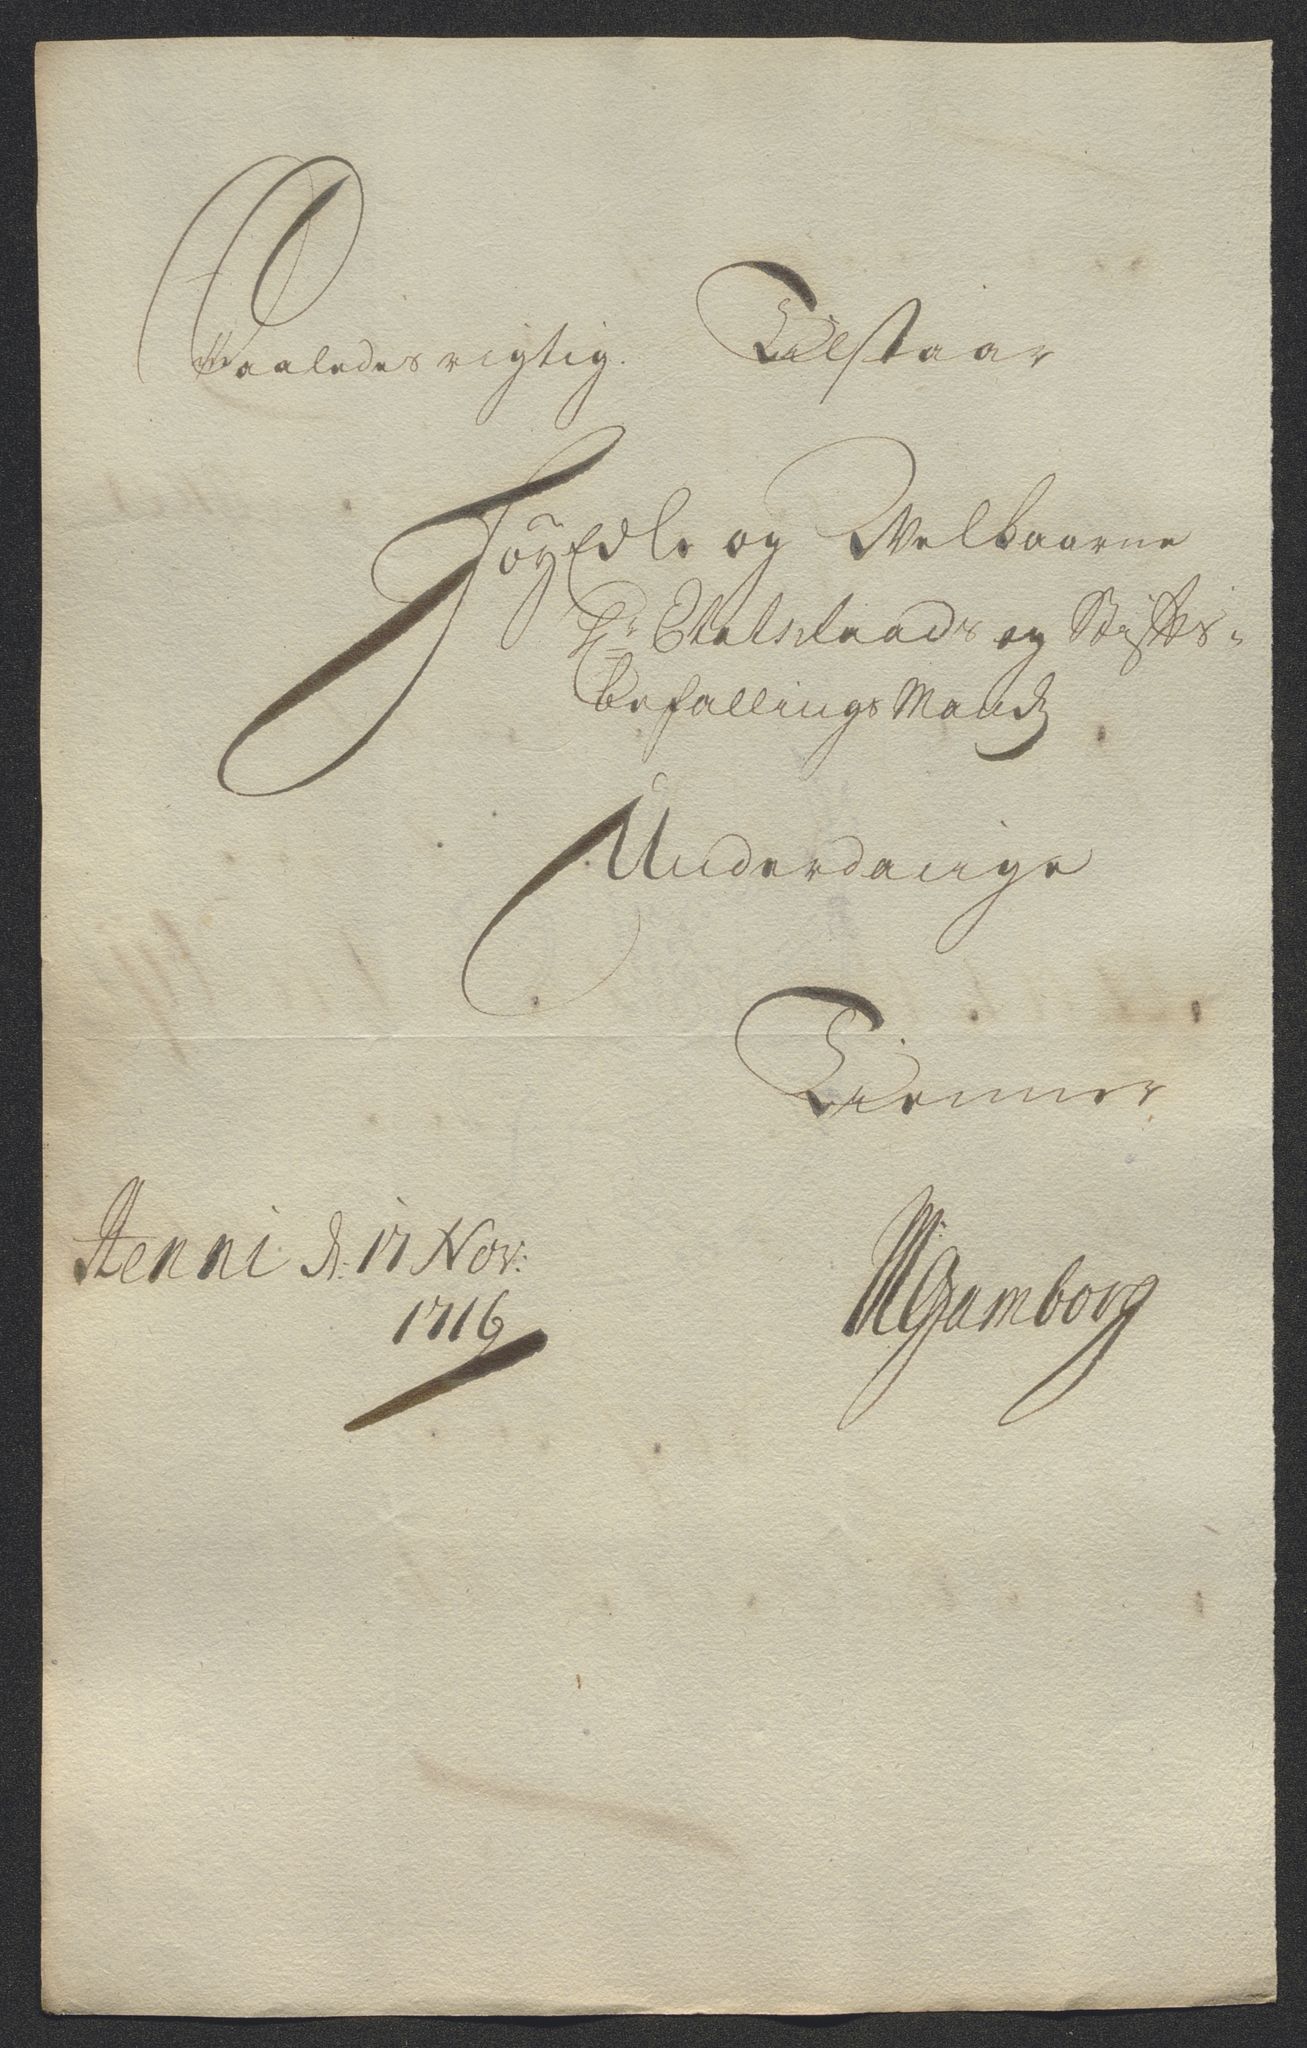 Saaledes rigtig. Tilstaar
HøyEdle og Welbaarne
Hr: Etatsraads og Stifts-
befallings Mands
Underdanige
Tienner
Stenni d: 17 Nov:
1716
MGamborg